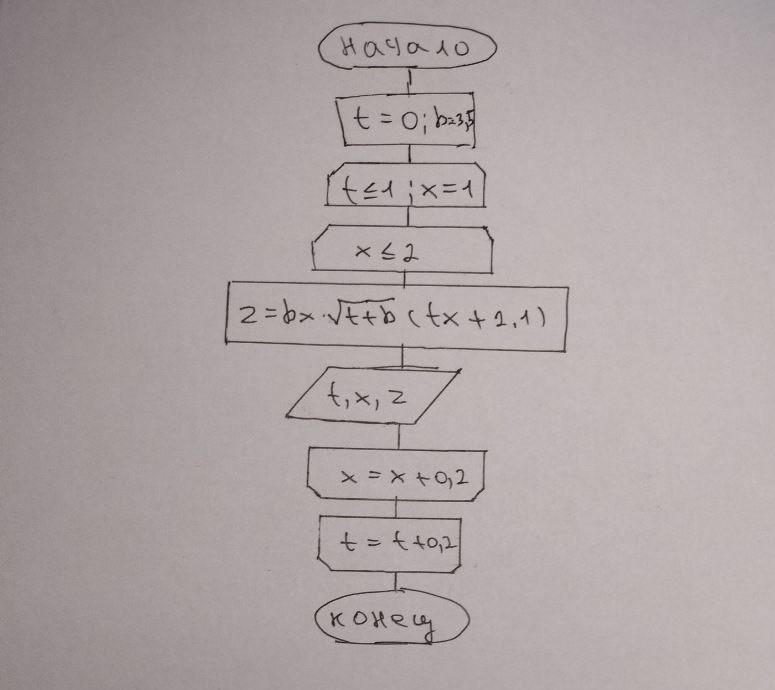 начало
t = 0; b=3,5
t≤1 ; x=1
x ≤ 2
z = bx·√t+b (tx + 2,1)
t, x, z
x = x + 0,2
t = t+0,2
конец